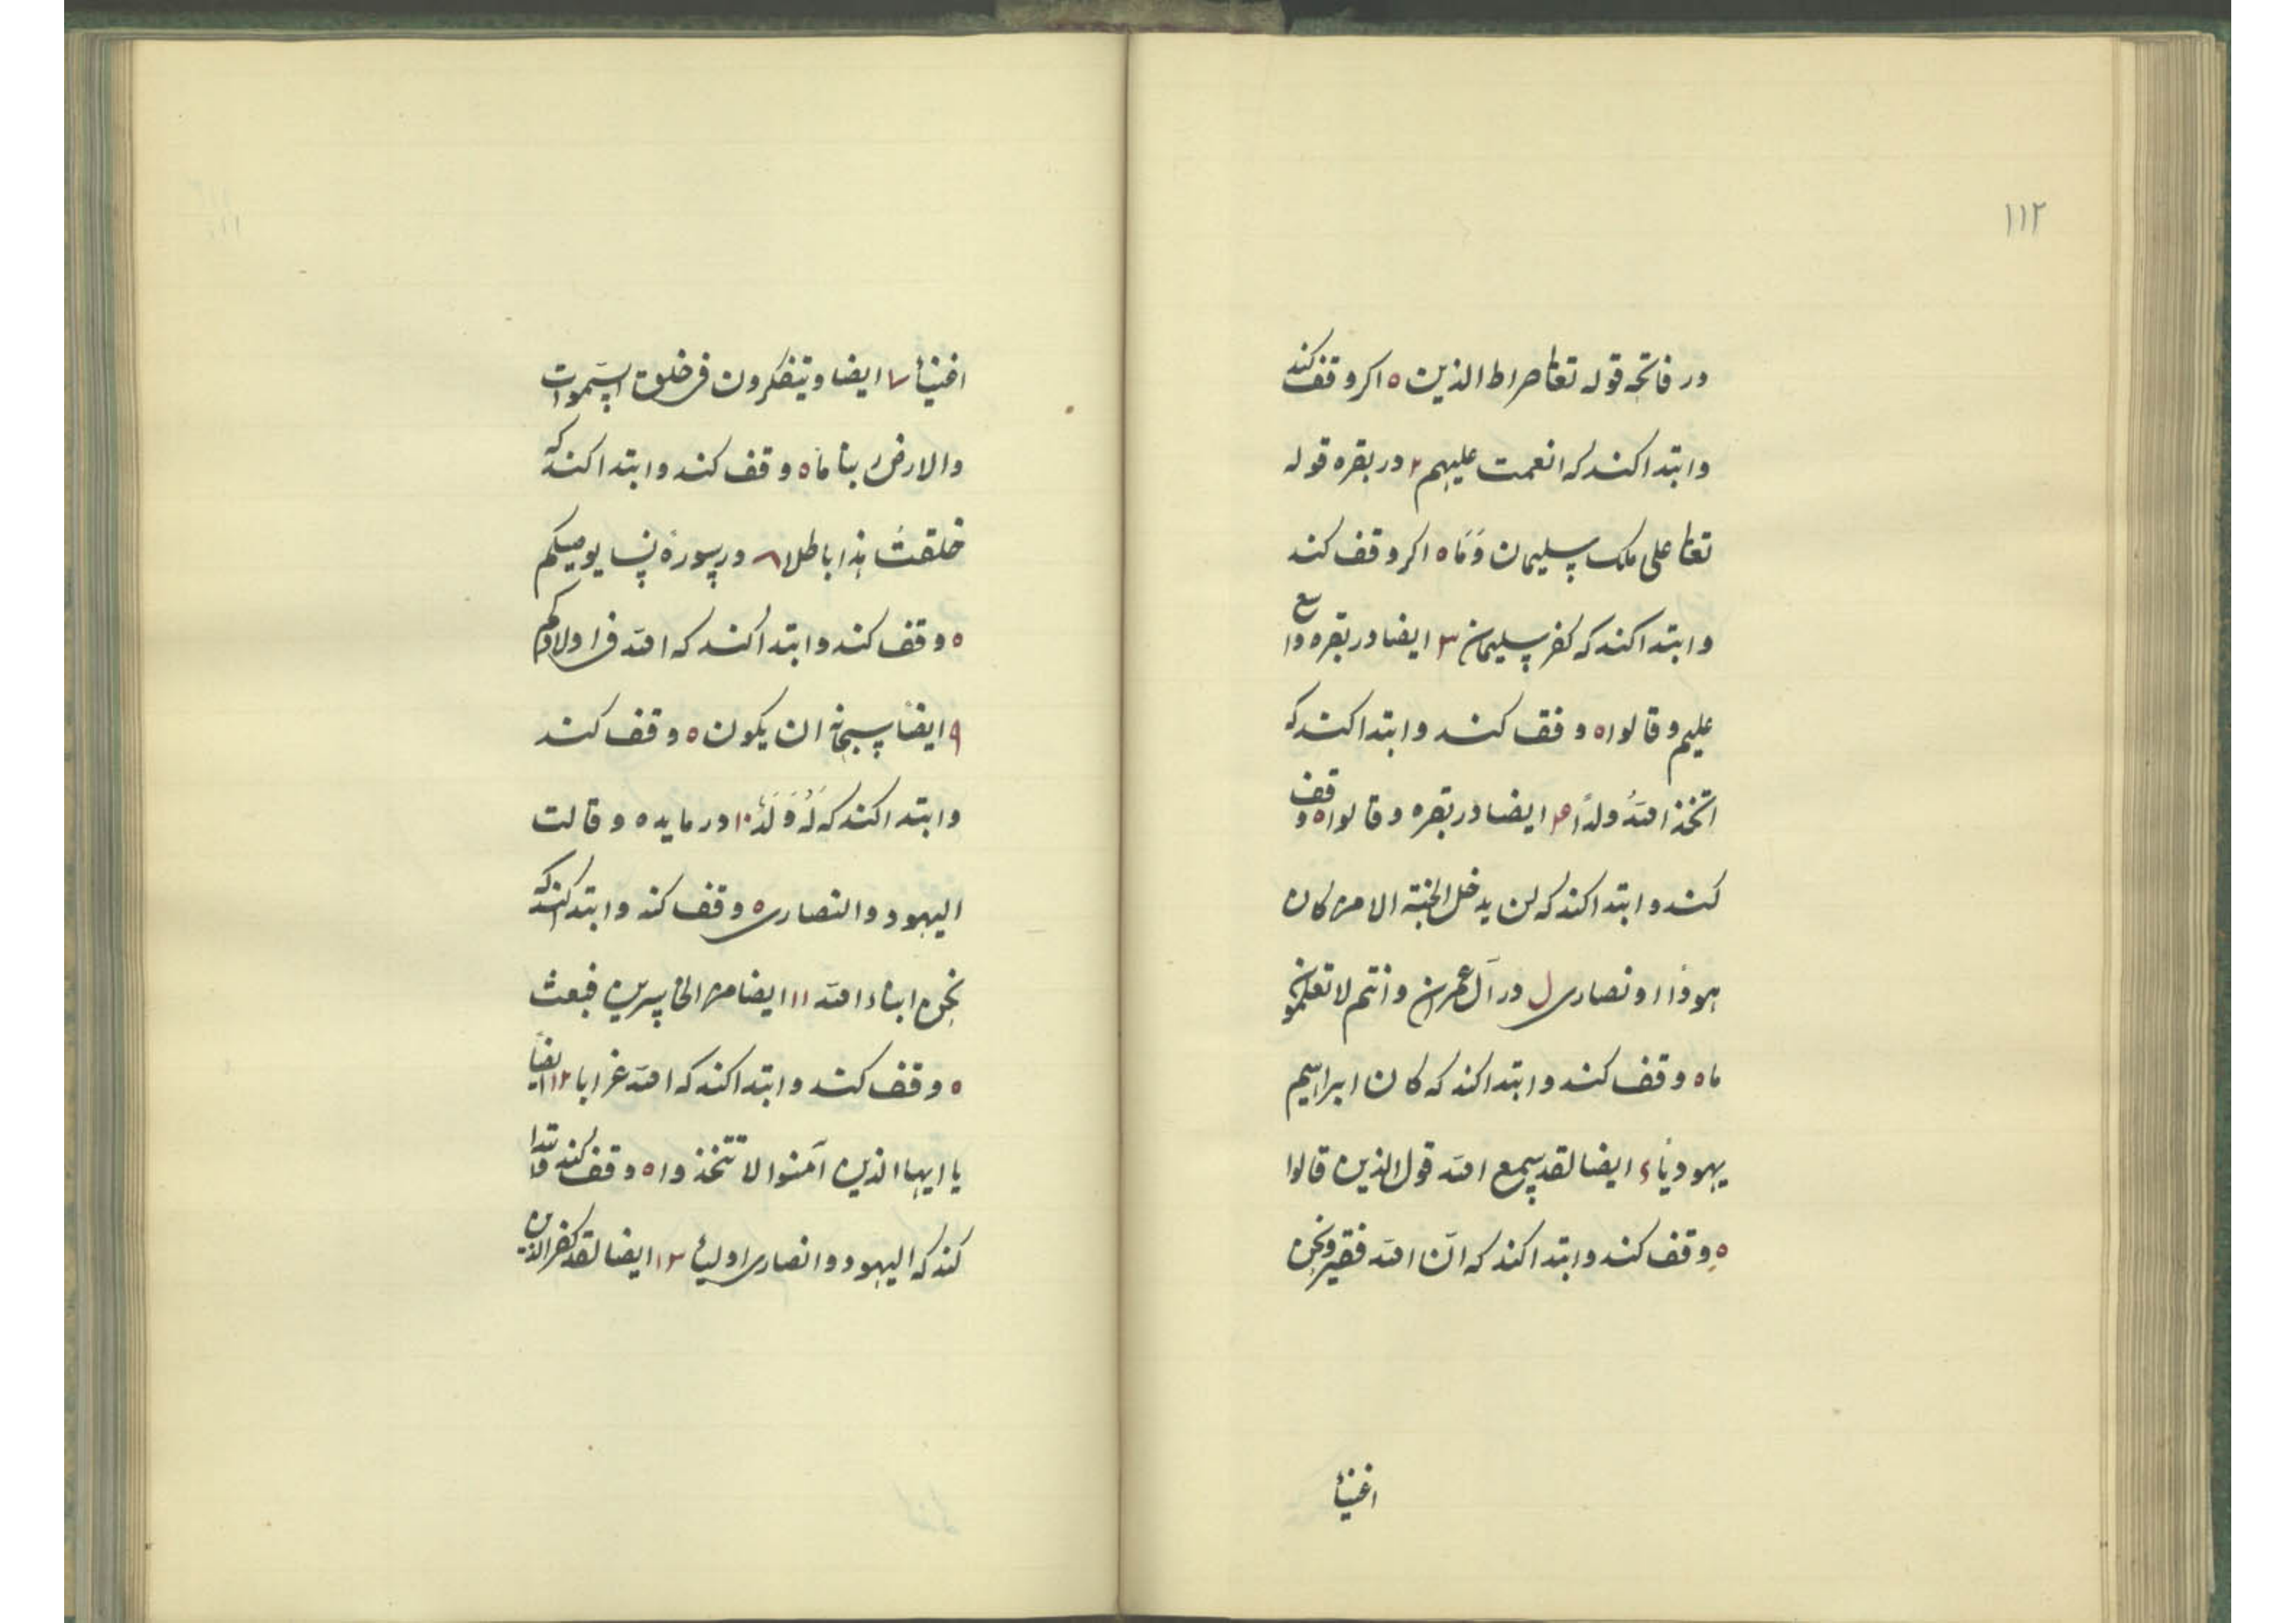 ۱۱۲
در فاتحه قوله تعا صراط الذین ه اکر وقف کند
وابتدا کند که انعمت علیهم ۲ در بقره قوله
تعا علی ملک سلیمان وَمَا ه اکر وقف کند
وابتدا کند که کفر سلیمان ۳ ایضا در بقره واسع
علیم وقالوا ه وقف کند وابتدا کند که
اتخذ اللهُ ولدًا ۴ ایضا در بقره وقالوا ه وقف
کند وابتدا کند که لن یدخل الجنة الا من کان
هودًا او نصاری ل در آل عمران وانتم لا تعلمون
ما ه وقف کند وابتدا کند که کان ابراهیم
یهودیًا ۶ ایضا لقد سمع الله قول الذین قالوا
ه وقف کند وابتدا کند که انّ الله فقیر ونحن
اغنیأ
اغنیأ ۷ ایضا ویتفکرون فی خلق السّموات
والارض ربنا مَا ه وقف کند وابتدا کند که
خلقتَ هذا باطلا ۸ در سورهٔ نسا یوصیکم
ه وقف کند وابتدا کند که الله فی اولادکم
۹ ایضًا سبحانه ان یکون ه وقف کند
وابتدا کند که لَهُ وَلَدٌ ۱۰ در مایده وقالت
الیهود والنصاری ه وقف کند وابتدا کند که
نحن ابناء الله ۱۱ ایضا من الخاسرین فبعث
ه وقف کند وابتدا کند که الله غرابا ۱۲ ایضًا
یا ایها الذین آمنوا لا تتخذوا ه وقف کند وابتدا
کند که الیهود والنصاری اولیأ ۱۳ ایضا لقد کفر الذین